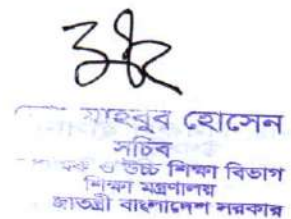 মাহবুব হোসেন
সচিব
ও উচ্চ শিক্ষা বিভাগ
শিক্ষা মন্ত্রণালয়
বাংলাদেশ সরকার